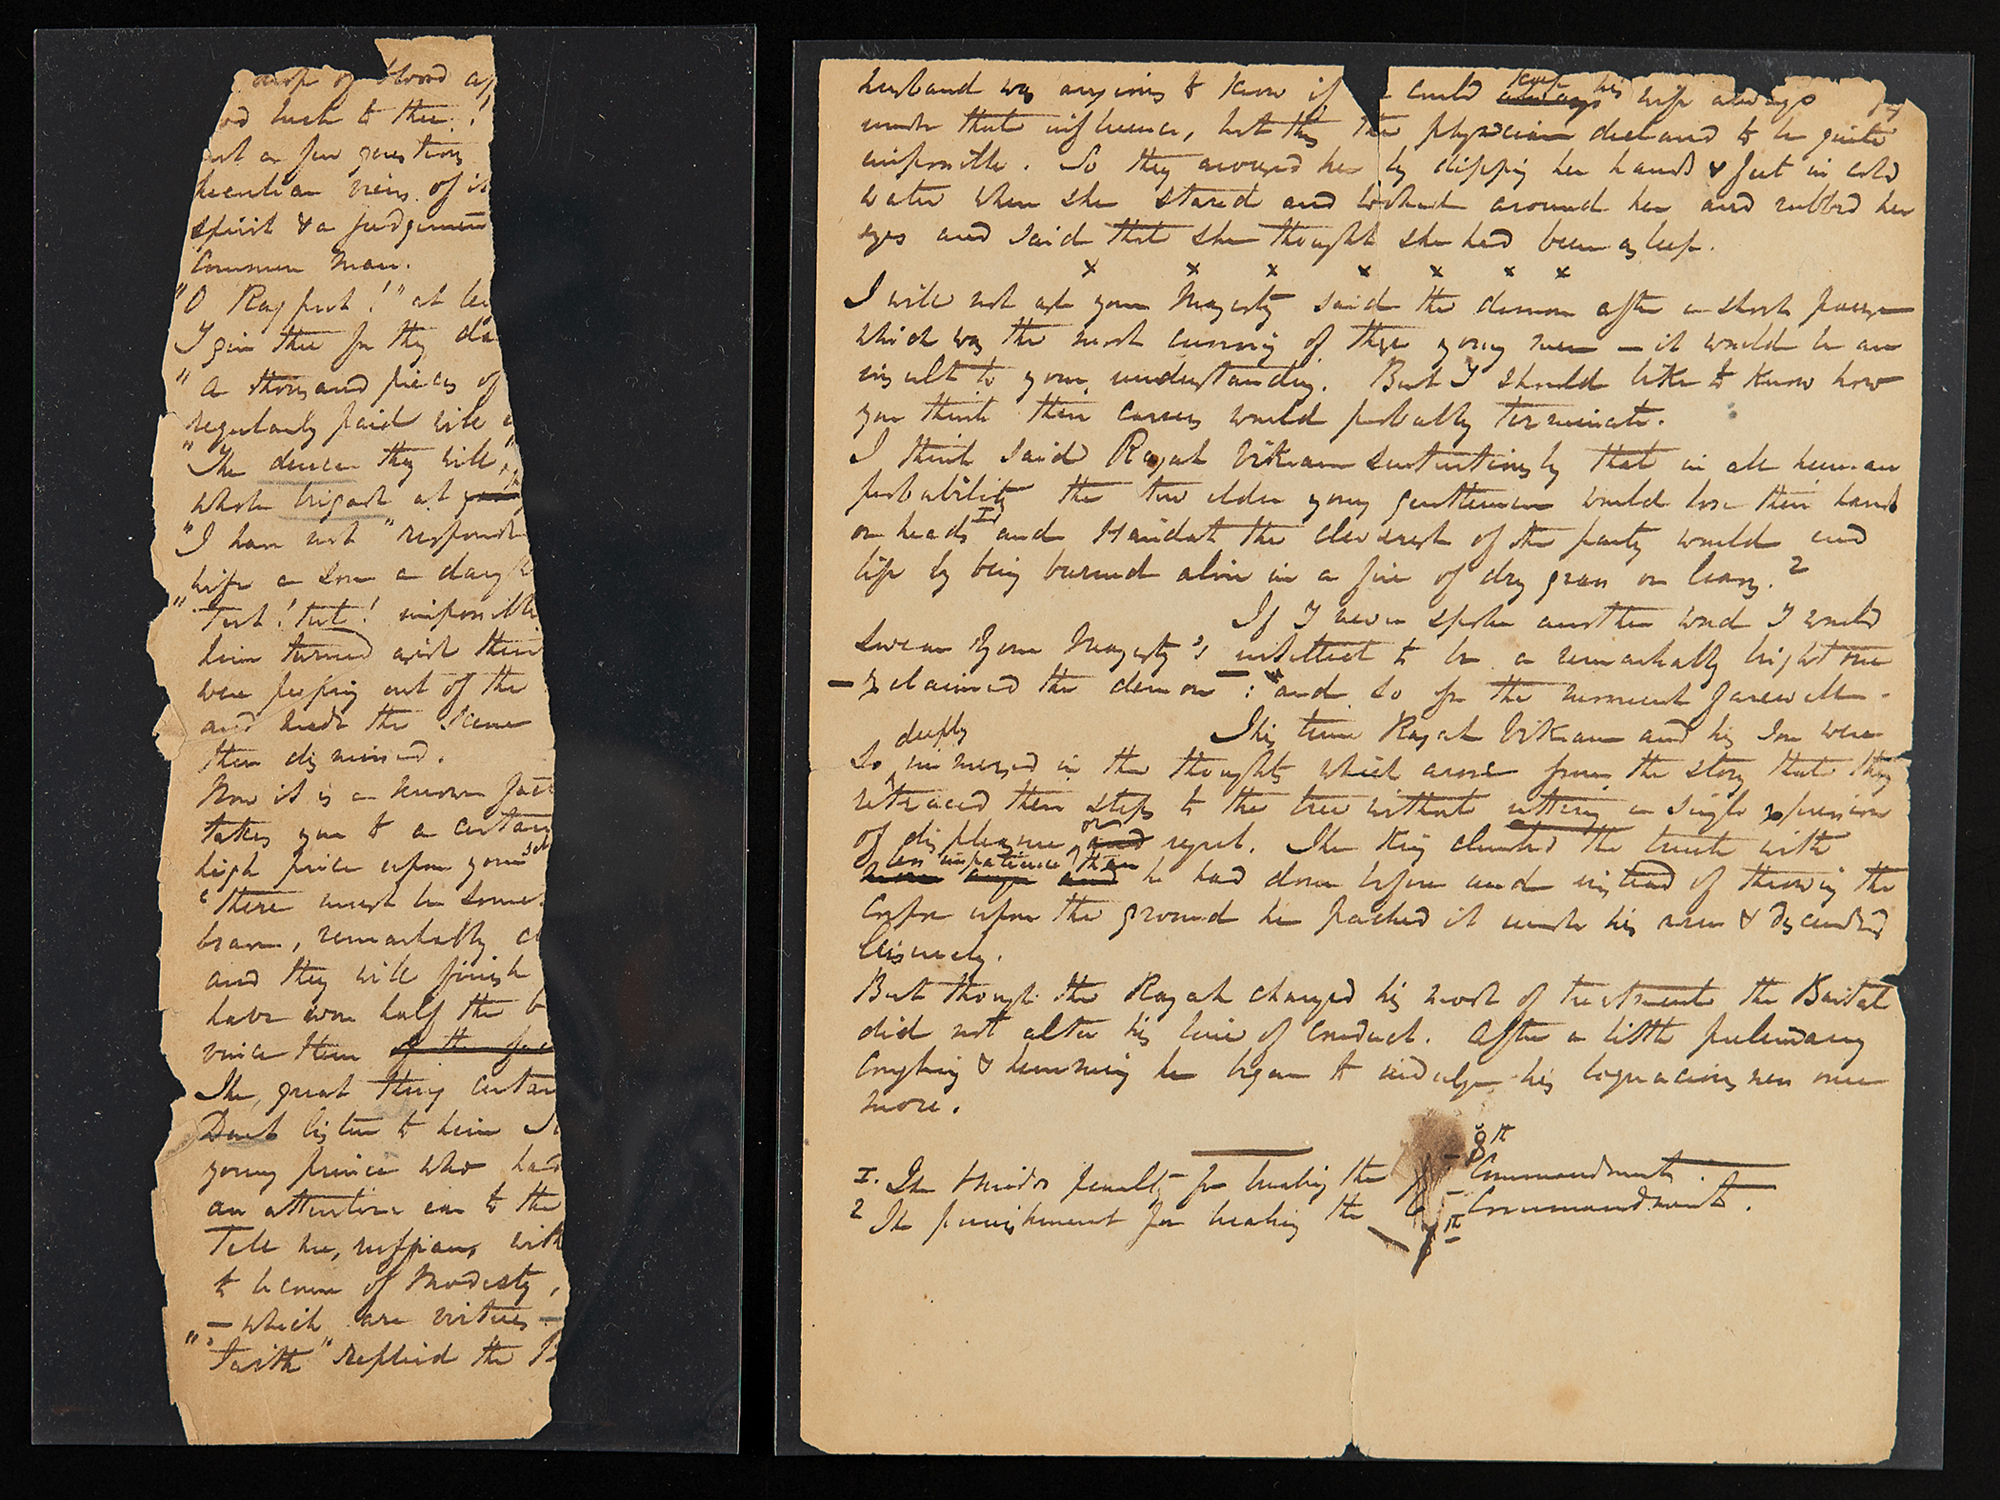 drop of blood
luck to thee!
a few questions
view of
spirit & a judgement
Common man.
"O Rajput!" at
I give thee for thy
"A thousand pieces of
regularly paid will
"The deuce they will,"
whole brigade at
"I have not" responde
wife a son a daugh
"Tut! tut! impossible
him turned
were peeping out of the
and made the
then dismissed.
Now it is a known fact
takes you to a certain
high price upon your
"there must be some
brave, remarkably
and they will finish
have won half the b
voice them of the
The great thing certain
Don't listen to him
young prince who had
an attentive ear to the
Tell me, ruffian, with
to become of modesty,
– which are virtues –
"Faith" replied the B
husband was anxious to know if could keep his wife always
under that influence, but this the physician declared to be quite
impossible. So they aroused her by dipping her hands & feet in cold
water when she stared and looked around her and rubbed her
eyes and said that she thought she had been asleep.
x x x x x x x
I will not ask your Majesty said the demon after a short pause
which was the most cunning of these young men – it would be an
insult to your understanding. But I should like to know how
you think their careers would probably terminate.
I think said Rajah Vikram sententiously that in all human
probability the two elder young gentlemen would lose their hands
or heads 1 and Haridat the cleverest of the party would end
life by being burned alive in a fire of dry grass or leaves. 2
If I never spoke another word I would
swear Your Majesty's intellect to be a remarkably bright one
– exclaimed the demon –: and so for the moment farewell –
This time Rajah Vikram and his son were
so deeply immersed in the thoughts which arose from the story that they
retraced their steps to the tree without uttering a single expression
of displeasure or and regret. The King climbed the trunk with
less impatience than he had done before and instead of throwing the
corpse upon the ground he packed it under his arm & descended
leisurely.
But though the Rajah changed his mode of treatment the Baital
did not alter his line of conduct. After a little preliminary
coughing & humming he began to indulge his loquaciousness once
more.
1. The Hindoo penalty for breaking the 8th Commandment
2 The punishment for breaking the 7th Commandment.